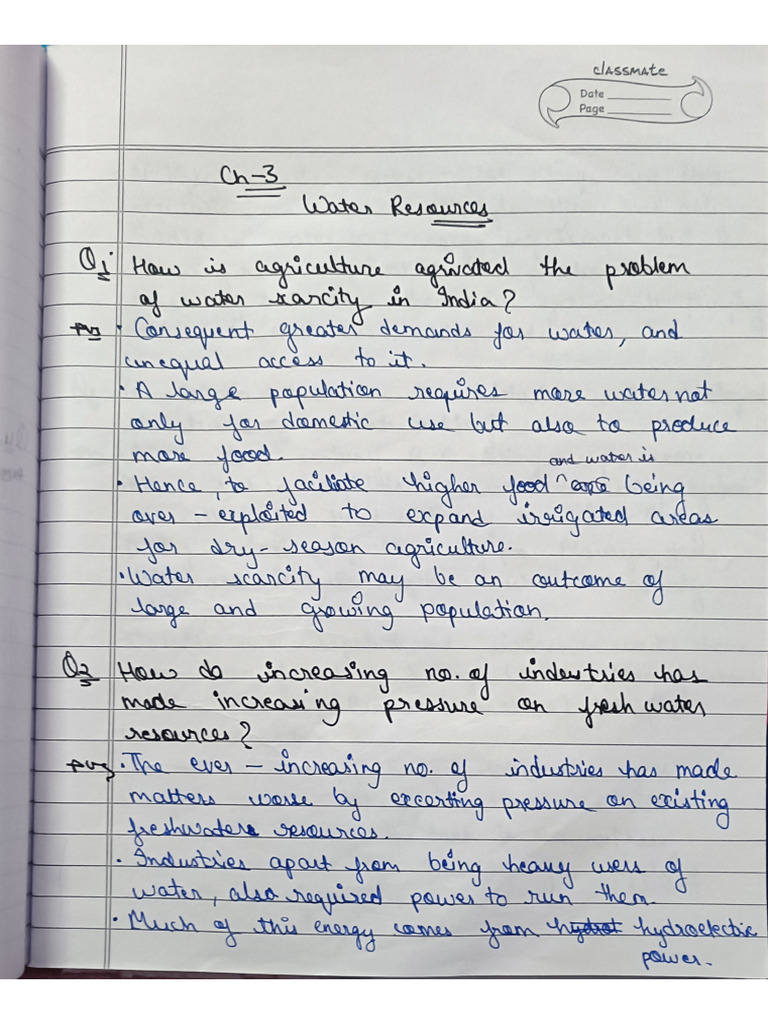 classmate
Date
Page
Ch-3
Water Resources
Q1 How is agriculture agrivated the problem
of water scarcity in India?
Ans • Consequent greater demands for water, and
unequal access to it.
• A large population requires more water not
only for domestic use but also to produce
more food.
and water is
• Hence, to faciliate higher food ^ are being
over - exploited to expand irrigated areas
for dry-season agriculture.
• Water scarcity may be an outcome of
large and growing population.
Q2 How do increasing no. of industries has
made increasing pressure on fresh water
resources?
Ans • The ever - increasing no. of industries has made
matters worse by excerting pressure on existing
freshwater resources.
• Industries apart from being heavy users of
water, also required power to run them.
• Much of this energy comes from hydrot hydroelectric
power.